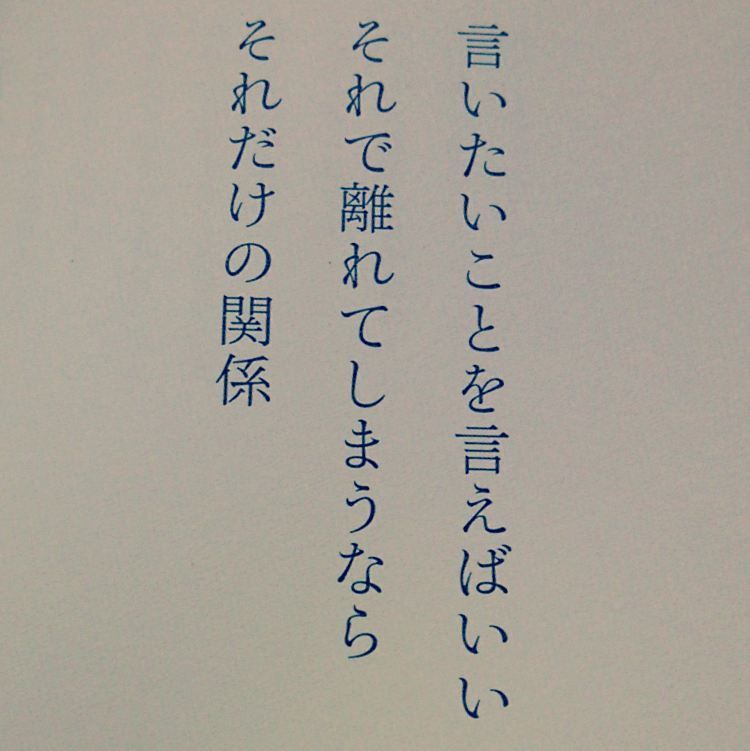 言いたいことを言えばいい
それで離れてしまうなら
それだけの関係